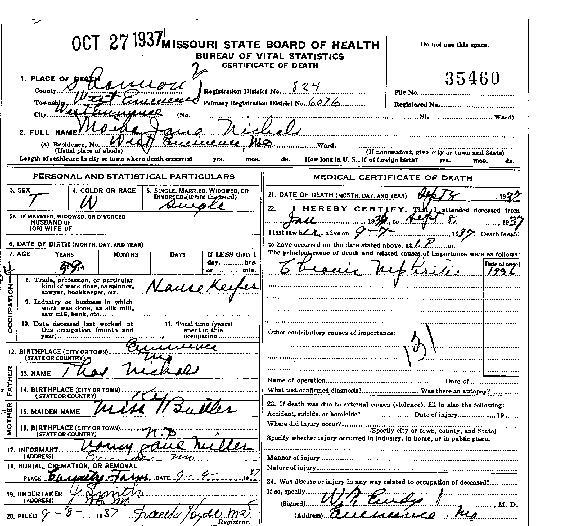 OCT 27 1937 MISSOURI STATE BOARD OF HEALTH
BUREAU OF VITAL STATISTICS
CERTIFICATE OF DEATH
Do not use this space.
1. PLACE OF DEATH
County Shannon Registration District No. 824 File No. 35460
Township West Eminence Primary Registration District No. 6076 Registered No.
City West Eminence No. St. Ward)
2. FULL NAME Jane Nichols
(a) Residence, No. West Eminence Mo Ward.
(Usual place of abode) (If nonresident, give city or town and State)
Length of residence in city or town where death occurred yrs. mos. ds. How long in U. S., if of foreign birth? yrs. mos. ds.
PERSONAL AND STATISTICAL PARTICULARS
3. SEX F 4. COLOR OR RACE W 5. SINGLE, MARRIED, WIDOWED, OR DIVORCED (write the word) Single
5A. IF MARRIED, WIDOWED, OR DIVORCED
HUSBAND OF
(OR) WIFE OF
6. DATE OF BIRTH (MONTH, DAY, AND YEAR)
7. AGE YEARS MONTHS DAYS If LESS than 1 day, hrs. or min.
OCCUPATION
8. Trade, profession, or particular kind of work done, as spinner, sawyer, bookkeeper, etc. House Keeper
9. Industry or business in which work was done, as silk mill, saw mill, bank, etc.
10. Date deceased last worked at this occupation (month and year) 11. Total time (years) spent in this occupation
12. BIRTHPLACE (CITY OR TOWN) Eminence
(STATE OR COUNTRY) Mo
FATHER
13. NAME Thos Nichols
14. BIRTHPLACE (CITY OR TOWN)
(STATE OR COUNTRY)
MOTHER
15. MAIDEN NAME Miss Butler
16. BIRTHPLACE (CITY OR TOWN)
(STATE OR COUNTRY)
17. INFORMANT Jane Miller
(ADDRESS)
18. BURIAL, CREMATION, OR REMOVAL
PLACE County Farm DATE 9-9-37
19. UNDERTAKER Smith
(ADDRESS)
20. FILED 9-8-1937 Frank Hyde MD
Registrar.
MEDICAL CERTIFICATE OF DEATH
21. DATE OF DEATH (MONTH, DAY, AND YEAR) Sept 8 1937
22. I HEREBY CERTIFY, That I attended deceased from
Jan 1937 to Sept 8, 1937
I last saw alive on 9-7-1937 Death is said
to have occurred on the date stated above, at
The principal cause of death and related causes of importance were as follows:
Date of onset
Chronic Nephritis 1936
131
Other contributory causes of importance:
Name of operation Date of
What test confirmed diagnosis? Was there an autopsy?
23. If death was due to external causes (violence), fill in also the following:
Accident, suicide, or homicide? Date of injury 19
Where did injury occur?
(Specify city or town, county, and State)
Specify whether injury occurred in industry, in home, or in public place.
Manner of injury
Nature of injury
24. Was disease or injury in any way related to occupation of deceased?
If so, specify
(Signed) W A Eudy M. D.
(Address) Eminence Mo